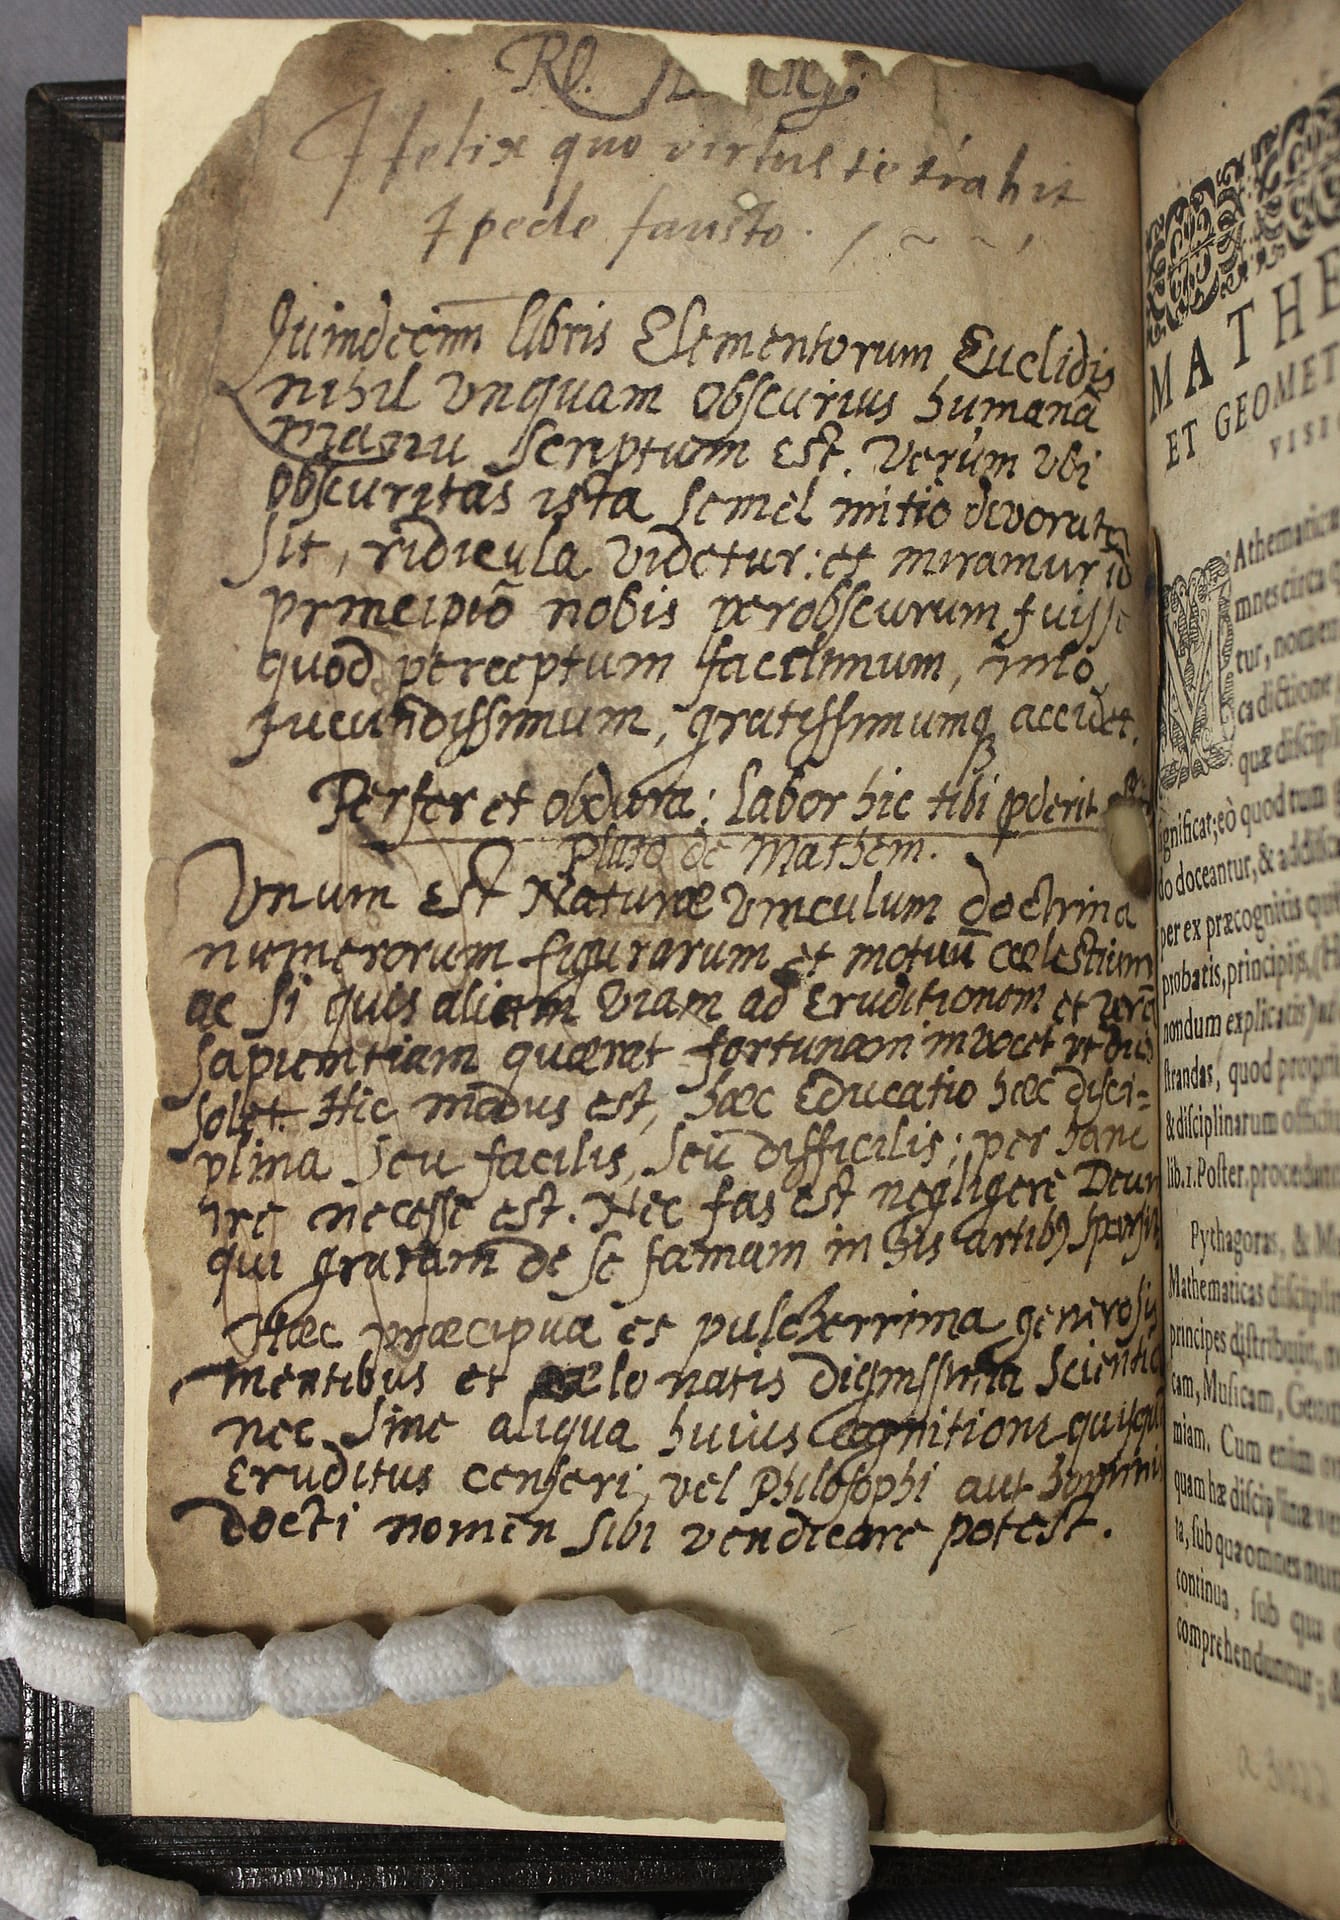 RD.
I felix quo virtus te trahit
I pede fausto.
Quindecim libris Elementorum Euclidis
nihil Vnquam Obscurius humanâ
manu scriptum Est. Verùm Vbi
Obscuritas ista semel initiò devorata
sit, ridicula Videtur: et miramur id
principiò nobis perobscurum fuisse
quod perceptum facillimum, imò
Jucundissimum, gratissimumq accidet.
Perfer et obdura: Labor hic tibi pderit
Plato de Mathem.
Vnum Est Naturæ Vinculum doctrina
numerorum figurarum et motuū cœlestium
ac si quis aliam Viam ad Eruditionem et verā
sapientiam quærat fortunam invocet vt
solet. Hic modus est, hæc Educatio hæc disci=
plina seu facilis, seu difficilis; per hanc
ire necesse est. Nec fas est negligere Deum
qui gratam de se famam in his artibȝ
Hæc præcipua et pulcherrima
mentibus et cælo natis dignissima
nec sine aliqua huius Cognitione
Eruditus censeri, vel Philosophi aut
docti nomen sibi vendicare potest.
MATHE
ET GEOMET
VISI
Athematica
mnes circa
tur, nomen
ca dictione
quæ discipli
ignificat; eò quod tum
do doceantur, & addisca
per ex præcognitis
probatis, principijs,
nondum explicatis)
strandas, quod propri
& disciplinarum offici
lib. 1. Poster. procedunt
Pythagoras, & Ma
Mathematicas discipli
principes distribuit,
cam, Musicam, Geom
miam. Cum enim
quam hæ disciplinæ
ta, sub qua omnes num
continua, sub qua
comprehenduntur;